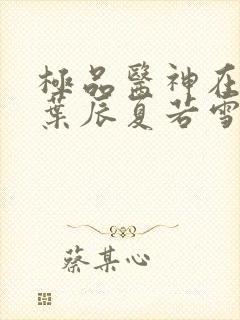 極品醫神在
葉辰夏若雪
蔡某心